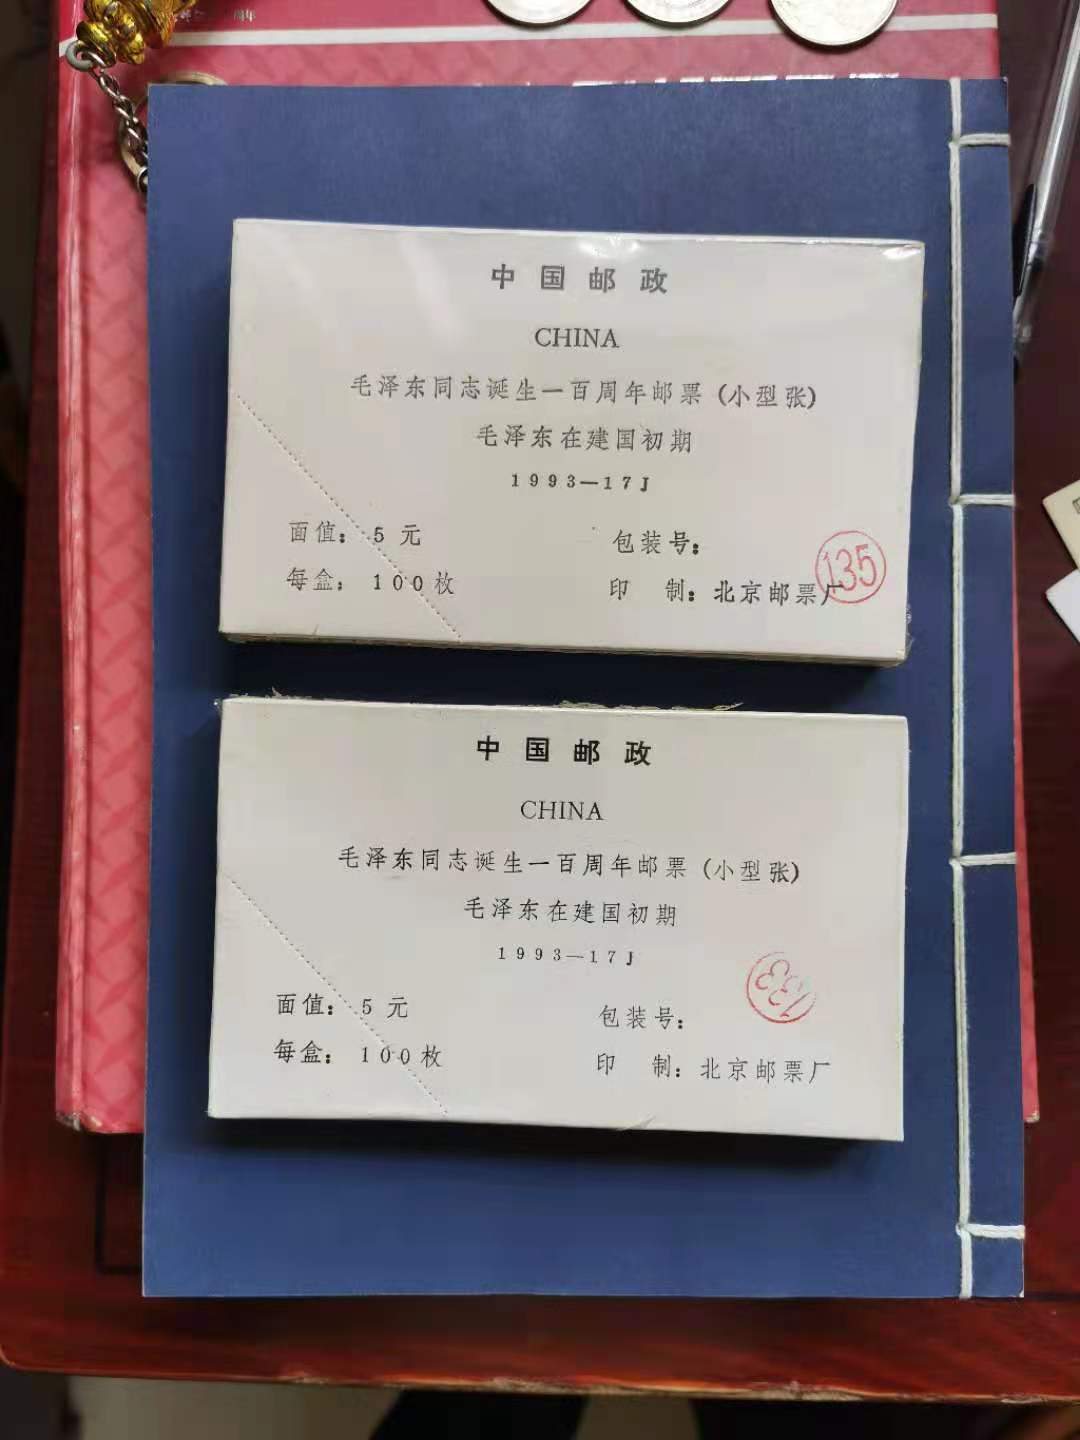 周年
中国邮政
CHINA
毛泽东同志诞生一百周年邮票(小型张)
毛泽东在建国初期
1993—17J
面值：5元
包装号：
135
每盒：100枚
印 制：北京邮票厂
中国邮政
CHINA
毛泽东同志诞生一百周年邮票(小型张)
毛泽东在建国初期
1993—17J
面值：5元
包装号：
每盒：100枚
印 制：北京邮票厂